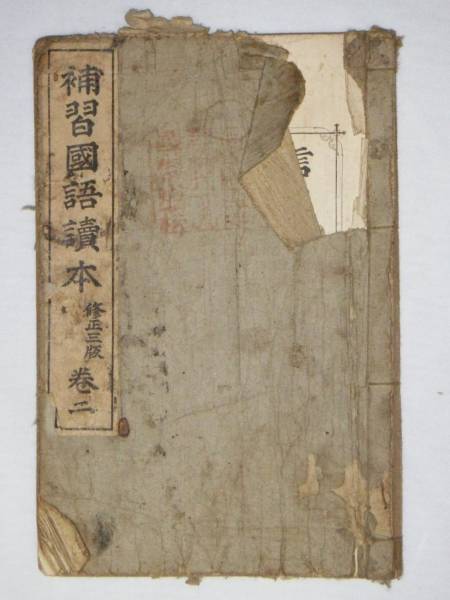 補習國語讀本
修正三版
卷二
信